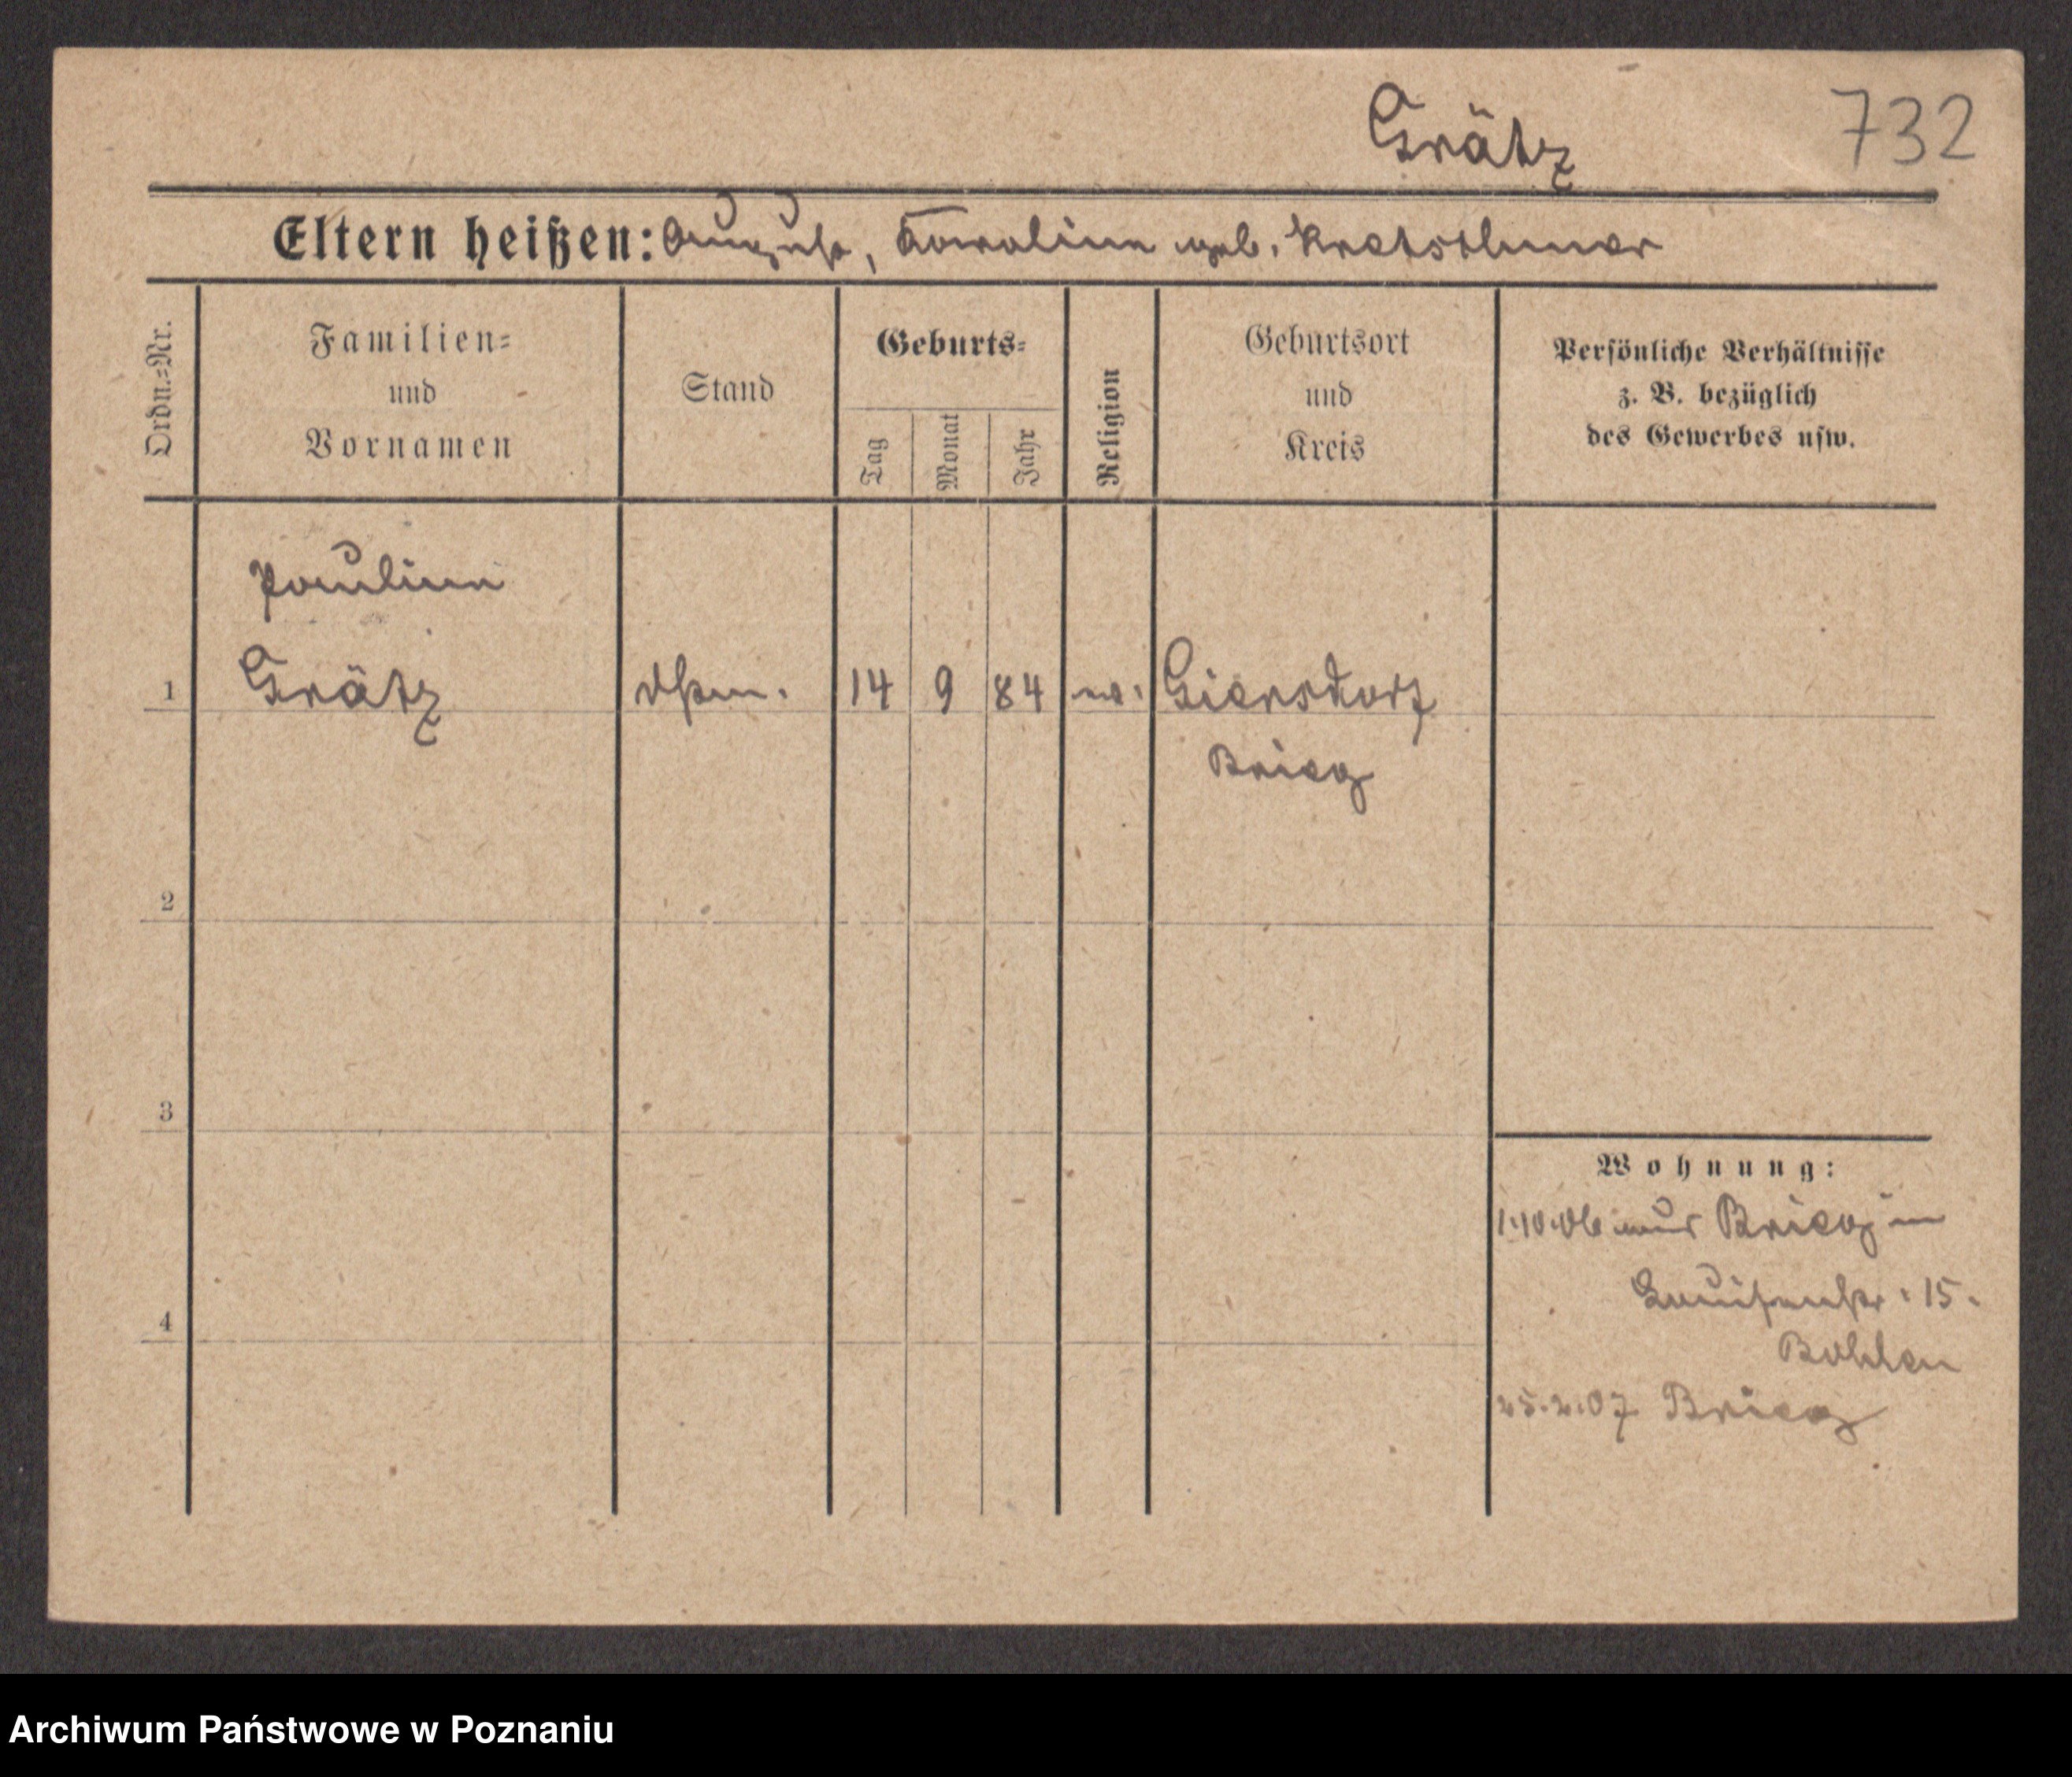 Grätz 732
Eltern heißen: August, Karoline geb. Kretschmer
Ordn.=Nr.
Familien=
und
Vornamen
Stand
Geburts=
Tag
Monat
Jahr
Religion
Geburtsort
und
Kreis
Persönliche Verhältnisse
z. B. bezüglich
des Gewerbes usw.
Pauline
1 Grätz 14 9 84 ev. Giersdorf
Brieg
2
3
4
Wohnung:
1.10.06 aus Brieg in
Louisenstr. 15.
25.2.07 Brieg
Archiwum Państwowe w Poznaniu